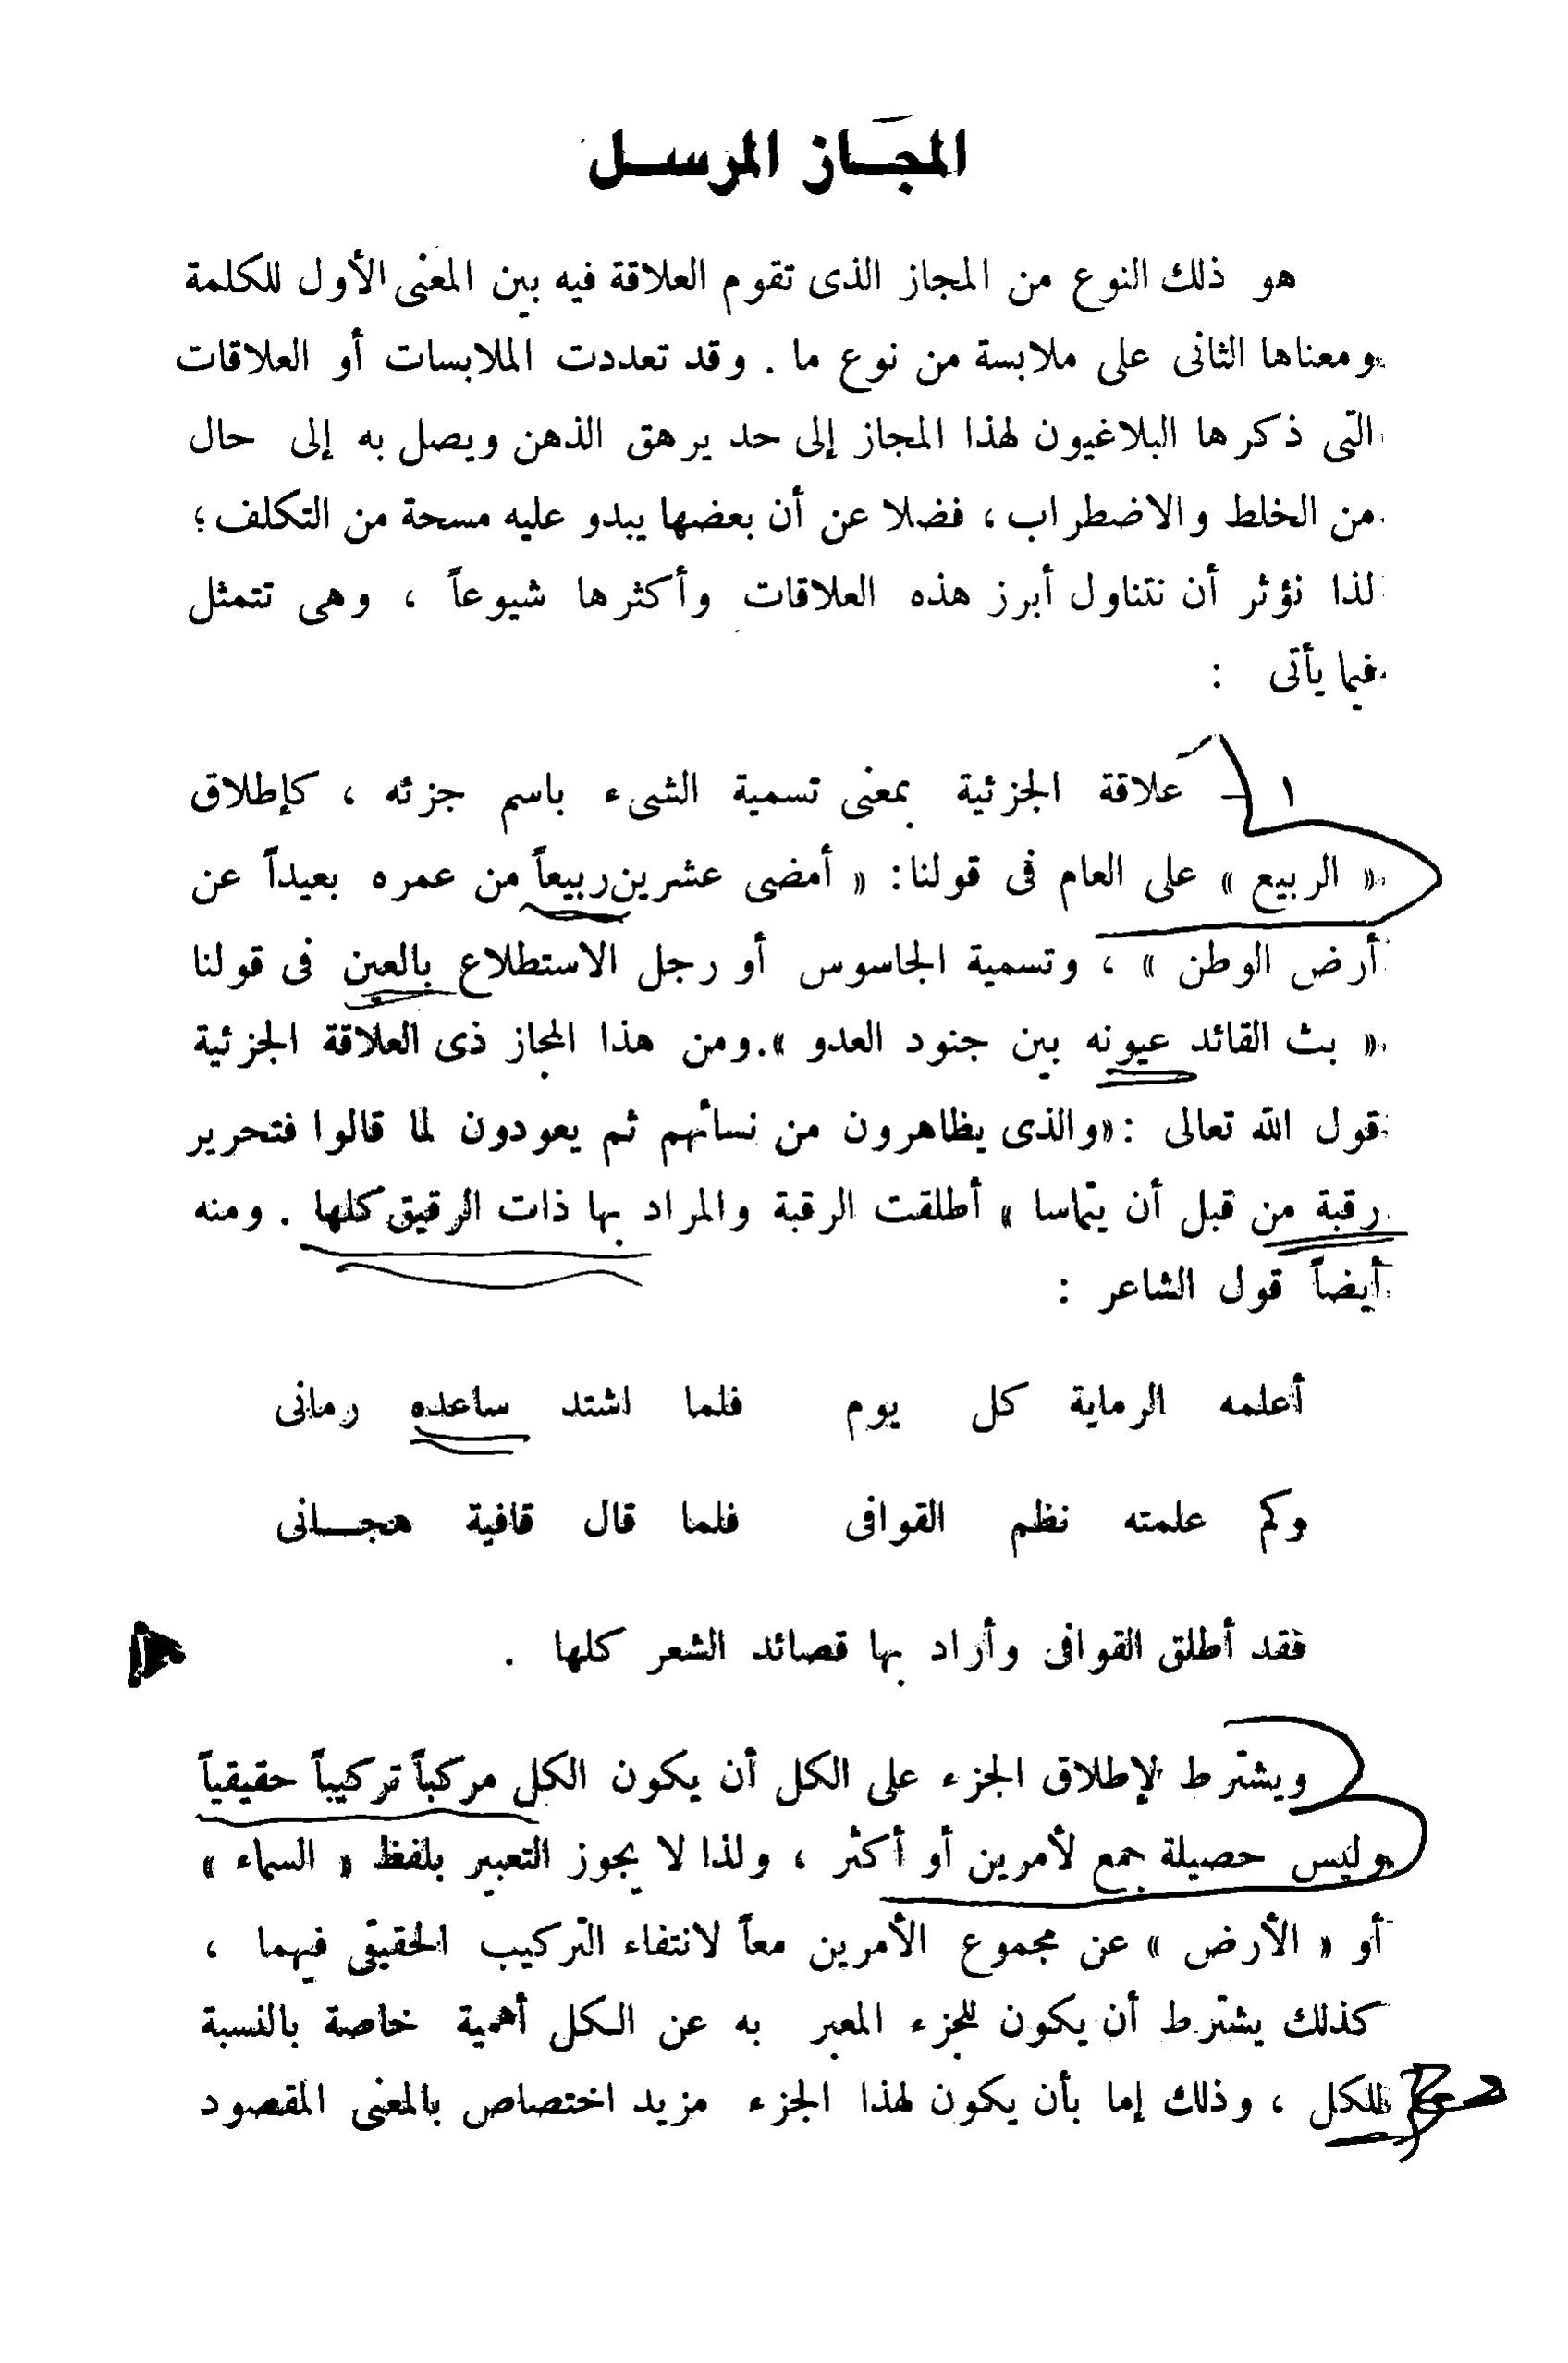 المجاز المرسل
هو ذلك النوع من المجاز الذى تقوم العلاقة فيه بين المعنى الأول للكلمة
ومعناها الثانى على ملابسة من نوع ما . وقد تعددت الملابسات أو العلاقات
التى ذكرها البلاغيون لهذا المجاز إلى حد يرهق الذهن ويصل به إلى حال
من الخلط والاضطراب ، فضلا عن أن بعضها يبدو عليه مسحة من التكلف ؛
لذا نؤثر أن نتناول أبرز هذه العلاقات وأكثرها شيوعاً ، وهى تتمثل
فيما يأتى :
١ - علاقة الجزئية بمعنى تسمية الشىء باسم جزئه ، كإطلاق
« الربيع » على العام فى قولنا : « أمضى عشرين ربيعاً من عمره بعيداً عن
أرض الوطن » ، وتسمية الجاسوس أو رجل الاستطلاع بالعين فى قولنا
« بث القائد عيونه بين جنود العدو ». ومن هذا المجاز ذى العلاقة الجزئية
قول الله تعالى : «والذى يظاهرون من نسائهم ثم يعودون لما قالوا فتحرير
رقبة من قبل أن يتماسا » أطلقت الرقبة والمراد بها ذات الرقيق كلها . ومنه
أيضاً قول الشاعر :
أعلمه الرماية كل يوم فلما اشتد ساعده رمانى
وكم علمته نظم القوافى فلما قال قافية هجـــانى
فقد أطلق القوافى وأراد بها قصائد الشعر كلها .
ويشترط لإطلاق الجزء على الكل أن يكون الكل مركباً تركيباً حقيقياً
وليس حصيلة جمع لأمرين أو أكثر ، ولذا لا يجوز التعبير بلفظ « السماء »
أو « الأرض » عن مجموع الأمرين معاً لانتفاء التركيب الحقيقى فيهما ،
كذلك يشترط أن يكون للجزء المعبر به عن الكل أهمية خاصة بالنسبة
للكل ، وذلك إما بأن يكون لهذا الجزء مزيد اختصاص بالمعنى المقصود